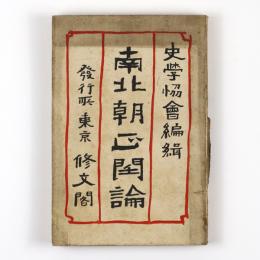 史學協會編緝
南北朝正閏論
發行所 東京 修文閣